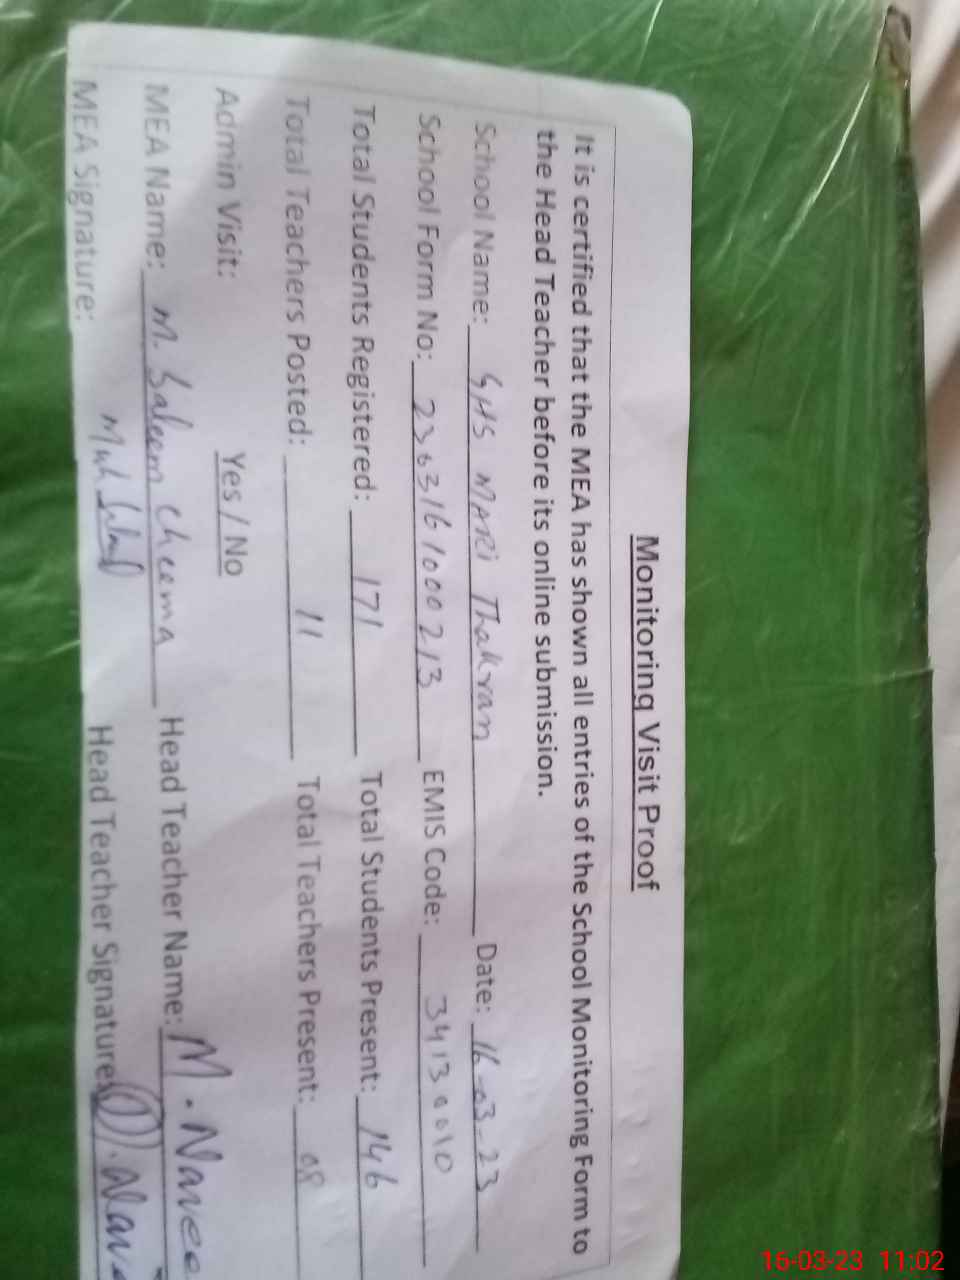 Monitoring Visit Proof
It is certified that the MEA has shown all entries of the School Monitoring Form to
the Head Teacher before its online submission.
School Name: GHS MARI Thakran Date: 16-03-23
School Form No: 2303161000213 EMIS Code: 34130010
Total Students Registered: 171 Total Students Present: 146
Total Teachers Posted: 11 Total Teachers Present: 08
Admin Visit: Yes / No
MEA Name: M. Saleem Cheema Head Teacher Name: M. Navee
MEA Signature: Head Teacher Signature:
16-03-23 11:02